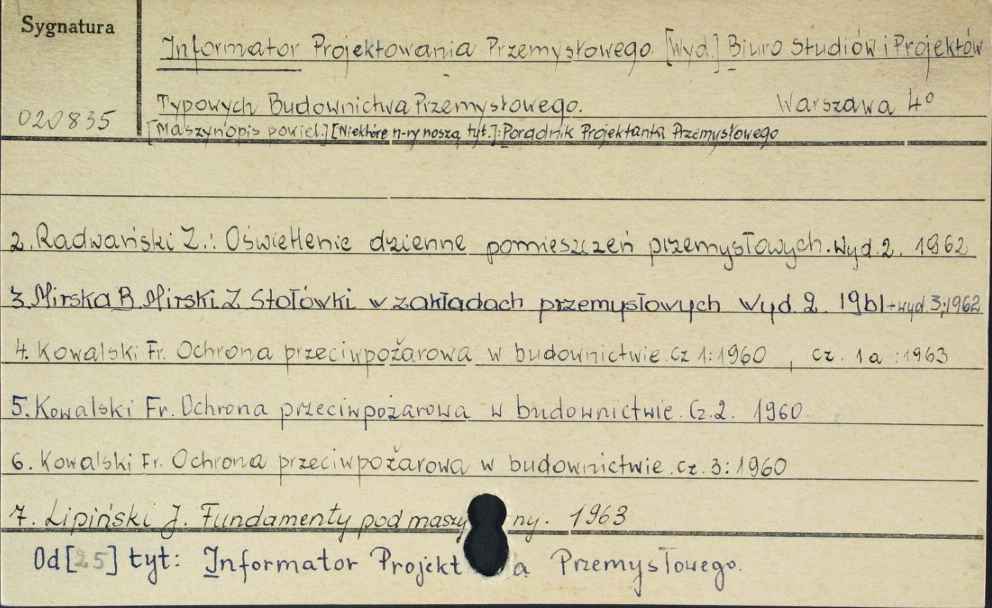 Sygnatura
Informator Projektowania Przemysłowego [Wyd.] Biuro Studiów i Projektów
Typowych Budownictwa Przemysłowego. Warszawa 4°
020835
[Maszynopis powiel.] [Niektóre n-ry noszą tyt.]: Poradnik Projektanta Przemysłowego
2. Radwański Z.: Oświetlenie dzienne pomieszczeń przemysłowych. Wyd. 2. 1962
3. Mirska B. Mirski Z. Stołówki w zakładach przemysłowych Wyd. 2. 1961 - wyd. 3; 1962
4. Kowalski Fr. Ochrona przeciwpożarowa w budownictwie. Cz 1: 1960, cz. 1a : 1963
5. Kowalski Fr. Ochrona przeciwpożarowa w budownictwie. Cz. 2. 1960
6. Kowalski Fr. Ochrona przeciwpożarowa w budownictwie. cz. 3: 1960
7. Lipiński J. Fundamenty pod maszy ny. 1963
Od [25] tyt: Informator Projekt a Przemysłowego.